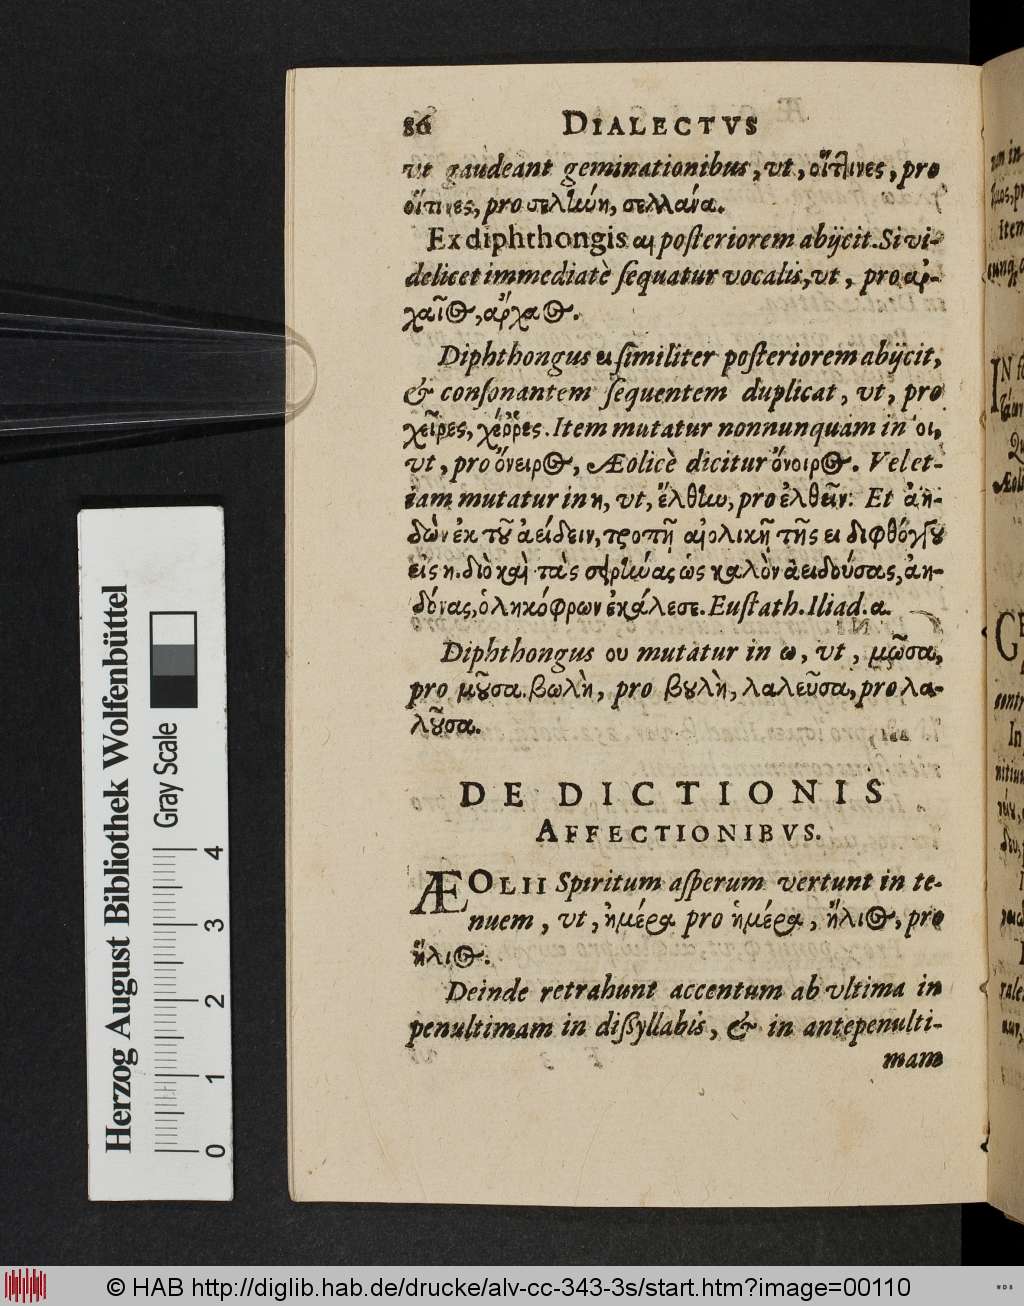 86 DIALECTVS
vt gaudeant geminationibus, vt, οἵτλινες, pro
οἵτινες, pro σελήνη, σελλάνα.
Ex diphthongis αι posteriorem abijcit. Si vi-
delicet immediatè sequatur vocalis, vt, pro ἀρ-
χαῖος, ἄρχαος.
Diphthongus ει similiter posteriorem abijcit,
& consonantem sequentem duplicat, vt, pro
χεῖρες, χέῤῥες. Item mutatur nonnunquam in οι,
vt, pro ὄνειρος, Æolicè dicitur ὄνοιρος. Vel et-
iam mutatur in η, vt, ἔλθην, pro ἐλθεῖν: Et ἀη-
δὼν ἐκ τοῦ ἀείδειν, τροπῇ αἰολικῇ τῆς ει διφθόγγου
εἰς η. διὸ καὶ τὰς σειρῆνας ὡς καλὸν ἀειδούσας, ἀη-
δόνας, ὁ ληκόφρων ἐκάλεσε. Eustath. Iliad. α.
Diphthongus ου mutatur in ω, vt, μῶσα,
pro μοῦσα. βωλὴ, pro βουλὴ, λαλεῦσα, pro λα-
λοῦσα.
DE DICTIONIS
AFFECTIONIBVS.
ÆOLII Spiritum asperum vertunt in te-
nuem, vt, ἠμέρα pro ἡμέρα, ἤλιος, pro
ἥλιος.
Deinde retrahunt accentum ab vltima in
penultimam in dissyllabis, & in antepenulti-
mam
Herzog August Bibliothek Wolfenbüttel
Gray Scale
0 1 2 3 4
© HAB http://diglib.hab.de/drucke/alv-cc-343-3s/start.htm?image=00110